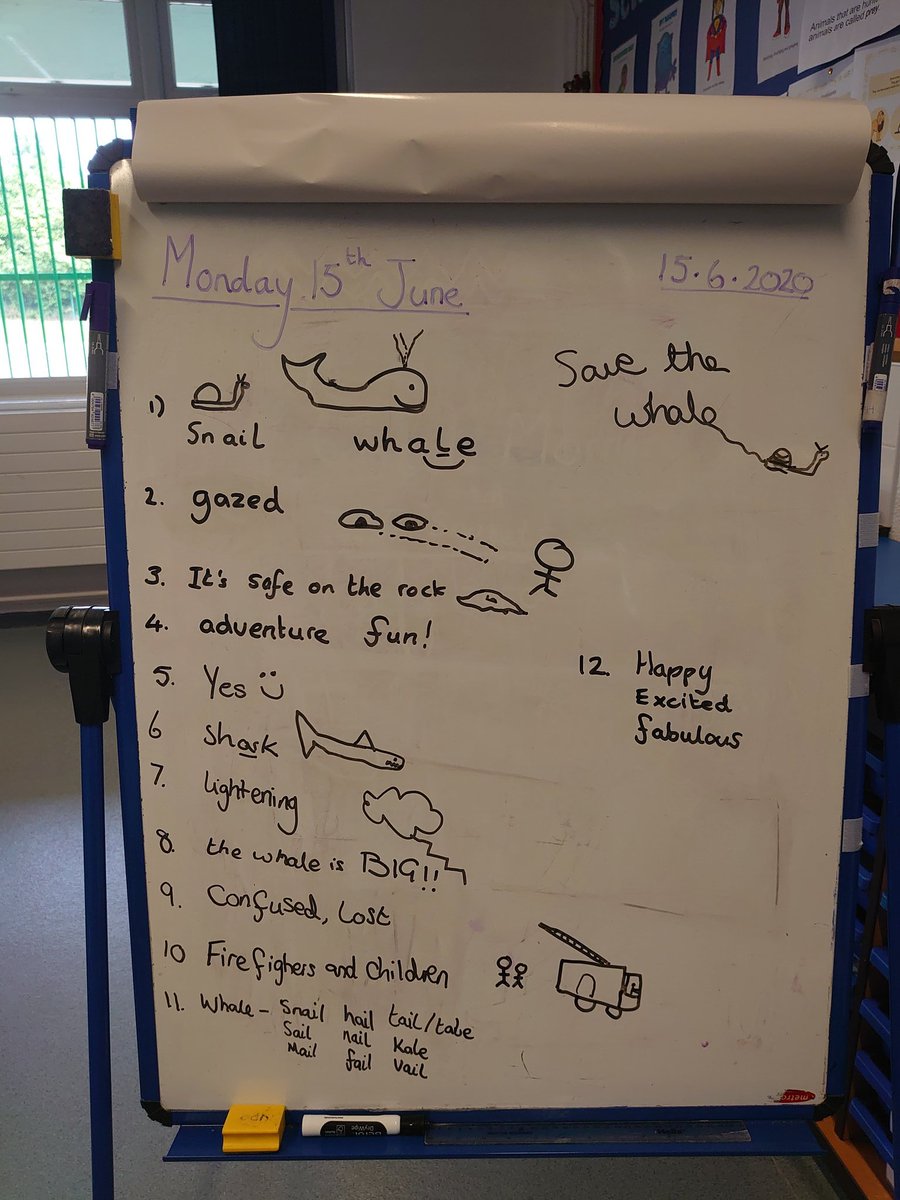 Animals that are hun
animals are called prey
Monday 15th June
15.6.2020
Save the
whale
1) Snail whale
2. gazed
3. It's safe on the rock
4. adventure fun!
5. Yes
6 shark
7. lightening
8. the whale is BIG!!
9. Confused, Lost
10 Firefighers and Children
11. Whale - Snail hail tail/tale
Sail nail Kale
Mail fail Vail
12. Happy
Excited
fabulous
metro
Berol
DryWipe